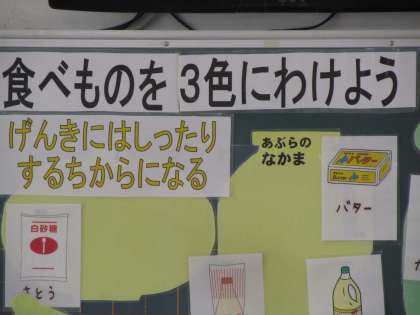 食べものを 3色にわけよう
げんきにはしったり
するちからになる
あぶらの
なかま
バター
バター
白砂糖
さとう